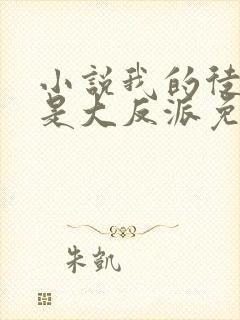 小説我的徒
是大反派免
朱凱